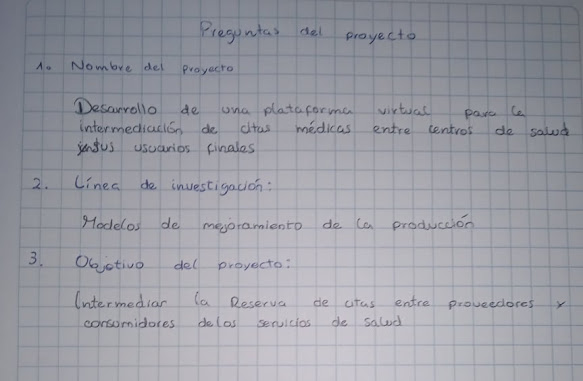 Preguntas del proyecto
1. Nombre del proyecto
Desarrollo de una plataforma virtual para la
intermediación de citas médicas entre centros de salud
sus usuarios finales
2. Línea de investigación:
Modelos de mejoramiento de la producción
3. Objetivo del proyecto:
Intermediar la Reserva de citas entre proveedores y
consumidores de los servicios de salud